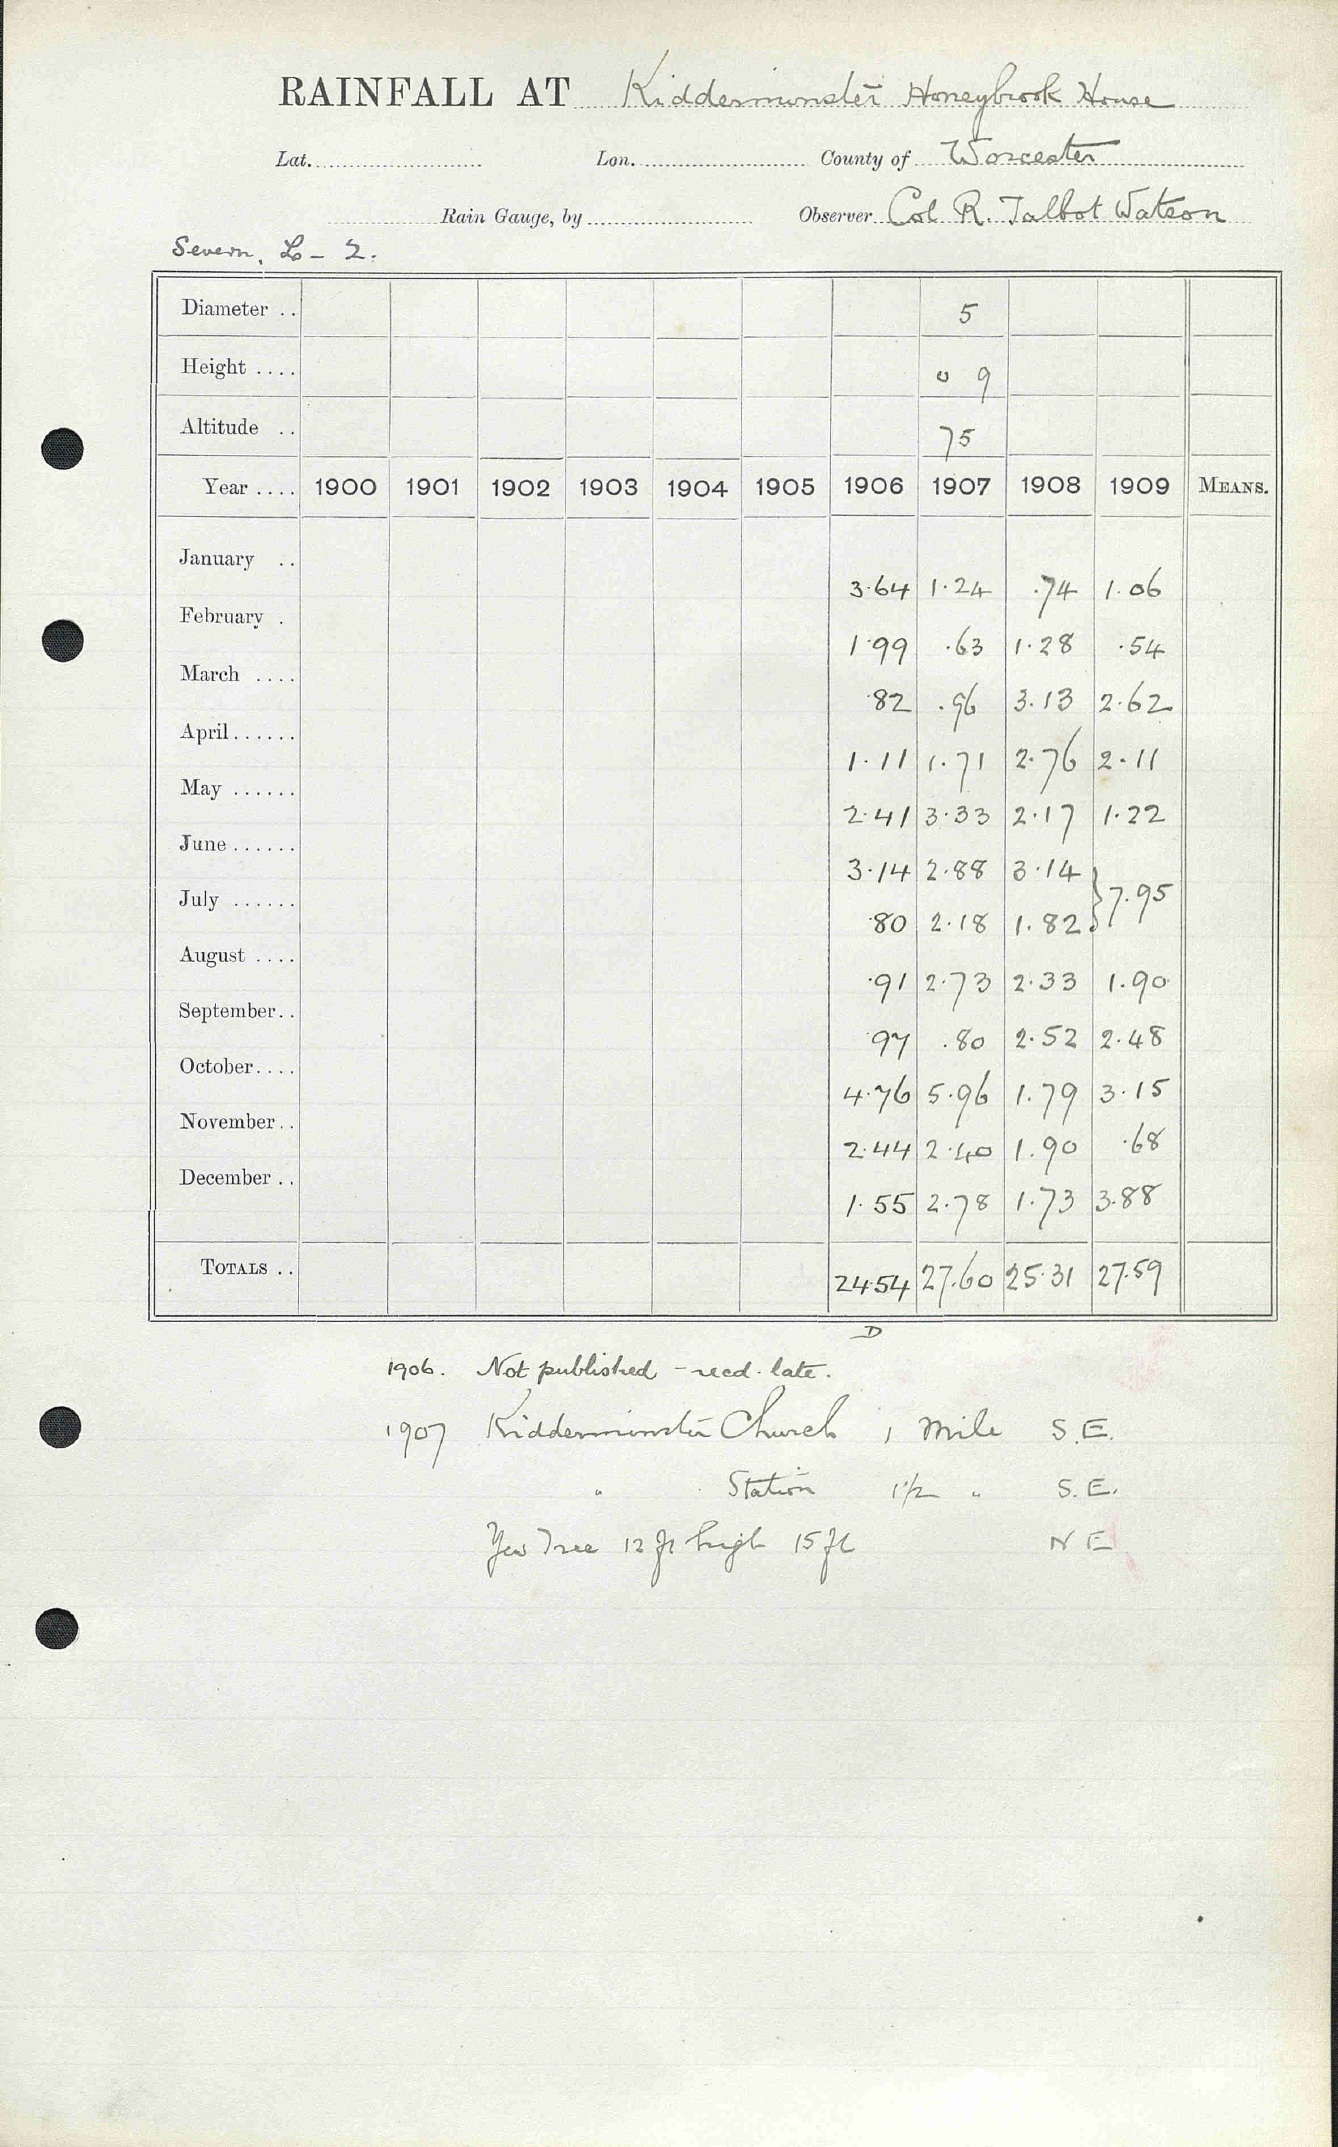 RAINFALL AT Kidderminster Honeybrook House
Lat. Lon. County of Worcester
Rain Gauge, by Observer Col R. Talbot Watson
Severn, L - 2.
Diameter .. 5
Height .... 0 9
Altitude .. 75
Year .... 1900 1901 1902 1903 1904 1905 1906 1907 1908 1909 MEANS.
January .. 3.64 1.24 .74 1.06
February . 1.99 .63 1.28 .54
March .... .82 .96 3.13 2.62
April...... 1.11 1.71 2.76 2.11
May ...... 2.41 3.33 2.17 1.22
June ...... 3.14 2.88 3.14 } 7.95
July ...... .80 2.18 1.82
August .... .91 2.73 2.33 1.90
September.. .97 .80 2.52 2.48
October.... 4.76 5.96 1.79 3.15
November.. 2.44 2.40 1.90 .68
December .. 1.55 2.78 1.73 3.88
TOTALS .. 24.54 27.60 25.31 27.59
D
1906. Not published - recd. late.
1907 Kidderminster Church 1 Mile S.E.
" Station 1 1/2 " S.E.
Yew Tree 12 ft high 15 ft N E